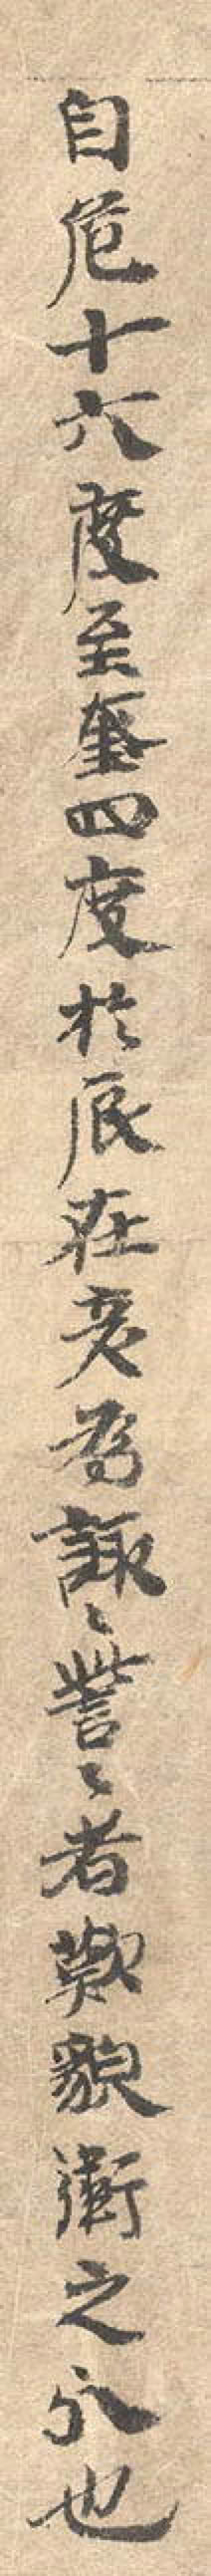 自危十六度至奎四度於辰在亥為諏〻訾〻者歎貌衛之分也